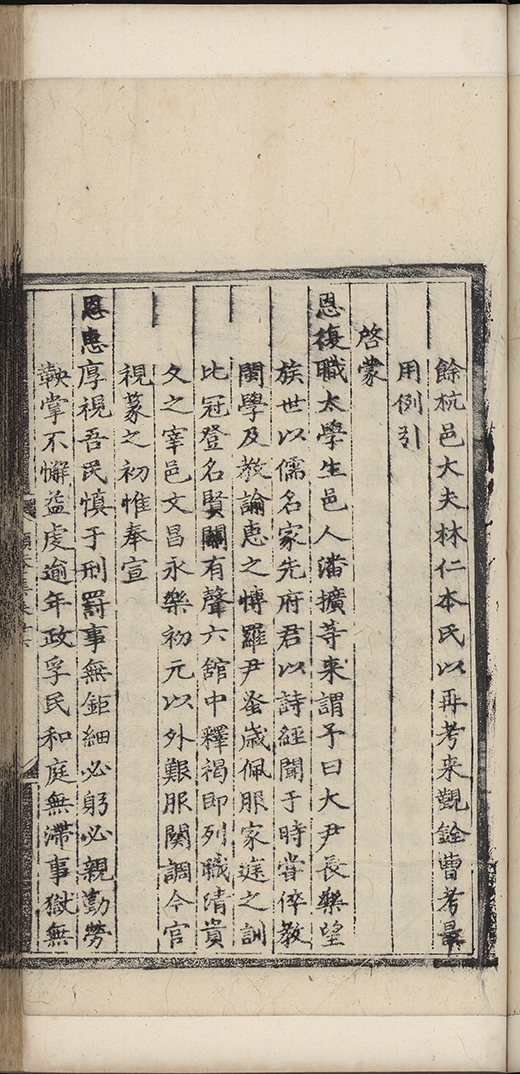 餘杭邑大夫林仁本氏以再考来觀銓曹考最
用例引
啓蒙
恩復職太學生邑人潘擴等来謂予曰大尹長樂望
族世以儒名家先府君以詩經聞于時嘗倅教
閩學及教諭惠之博羅尹蚤歳佩服家庭之訓
比冠登名賢關有聲六舘中釋褐即列職清貴
久之宰邑文昌永樂初元以外艱服闋調今官
視篆之初惟奉宣
恩惠厚視吾民慎于刑罸事無鉅細必躬必親勤勞
鞅掌不懈益虔逾年政孚民和庭無滯事獄無